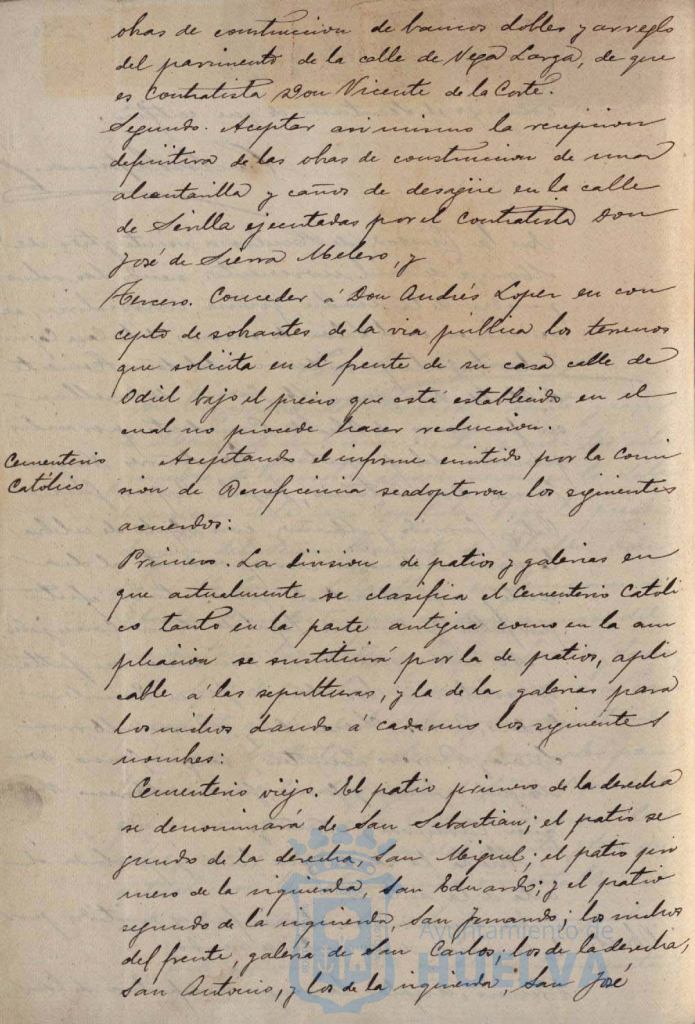 obras de construccion de bancos dobles y arreglo
del pavimento de la calle de Vega Larga, de que
es Contratista Don Vicente de la Corte.
Segundo. Aceptar asi mismo la recepcion
definitiva de las obras de construccion de una
alcantarilla y caños de desagüe en la calle
de Sevilla ejecutadas por el contratista Don
José de Sierra Melero, y
Tercero. Conceder á Don Andrés Lopez en con
cepto de sobrantes de la via pública los terrenos
que solicita en el frente de su casa calle de
Odiel bajo el precio que está establecido en el
cual no procede hacer reduccion.
Cementerio
Católico
Aceptando el informe emitido por la Comi
sion de Beneficencia se adoptaron los siguientes
acuerdos:
Primero. La division de patios y galerias en
que actualmente se clasifica el Cementerio Catoli
co tanto en la parte antigua como en la am
pliacion se sustituirá por la de patios, apli
cable á las sepulturas, y la de la galerias para
los nichos dando á cada uno los siguientes
nombres:
Cementerio viejo. El patio primero de la derecha
se denominará de San Sebastian; el patio se
gundo de la derecha, San Miguel; el patio pri
mero de la izquierda, San Eduardo; y el patio
segundo de la izquierda, San Fernando; los nichos
del frente, galeria de San Carlos; los de la derecha,
San Antonio, y los de la izquierda, San José
Ayuntamiento de
HUELVA